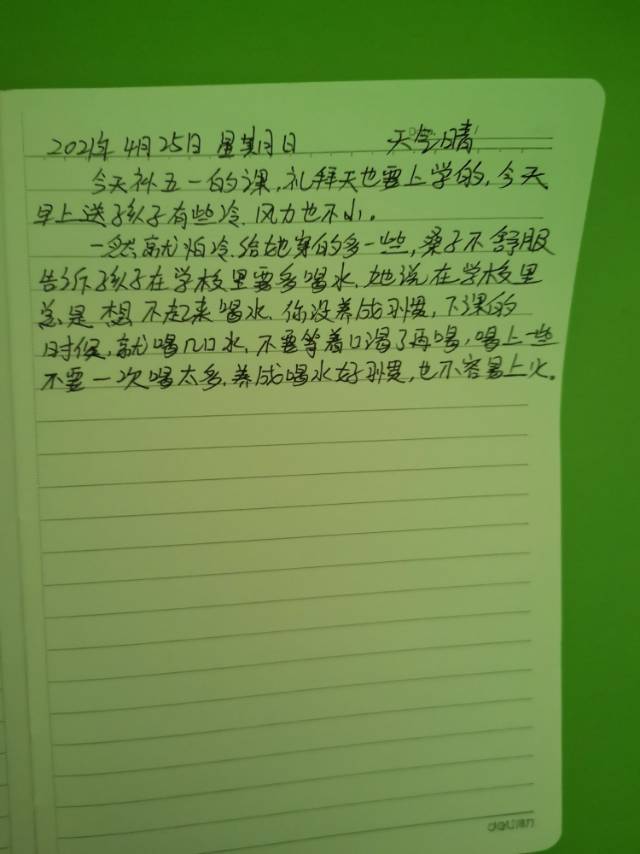 2021年4月25日 星期日 天气晴
今天补五一的课,礼拜天也要上学的,今天
早上送孩子有些冷.风力也不小。
一然就怕冷.给她穿的多一些,桑子不舒服
告诉孩子在学校里要多喝水.她说在学校里
总是想不起来喝水.你没养成习惯,下课的
时候,就喝几口水,不要等着口渴了再喝,喝上一些
不要一次喝太多.养成喝水好习惯,也不容易上火。
deli得力